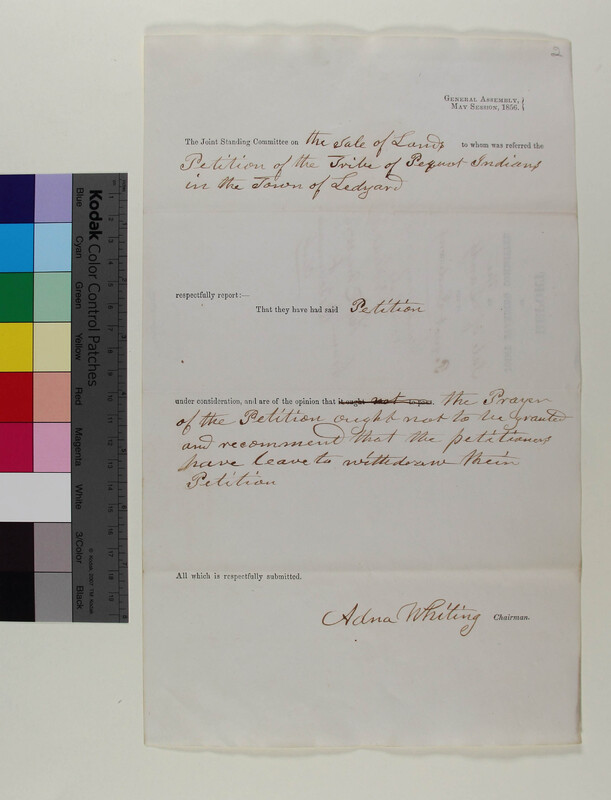 2
GENERAL ASSEMBLY,
MAY SESSION, 1856.
The Joint Standing Committee on the Sale of Lands to whom was referred the
Petition of the Tribe of Pequot Indians
in the Town of Ledyard
respectfully report:—
That they have had said Petition
under consideration, and are of the opinion that it ought not to pass, the Prayer
of the Petition ought not to be granted
and recomment that the petitioners
have leave to withdraw their
Petition
All which is respectfully submitted.
Adna Whiting Chairman.
Kodak
Color Control Patches
Blue
Cyan
Green
Yellow
Red
Magenta
White
3/Color
Black